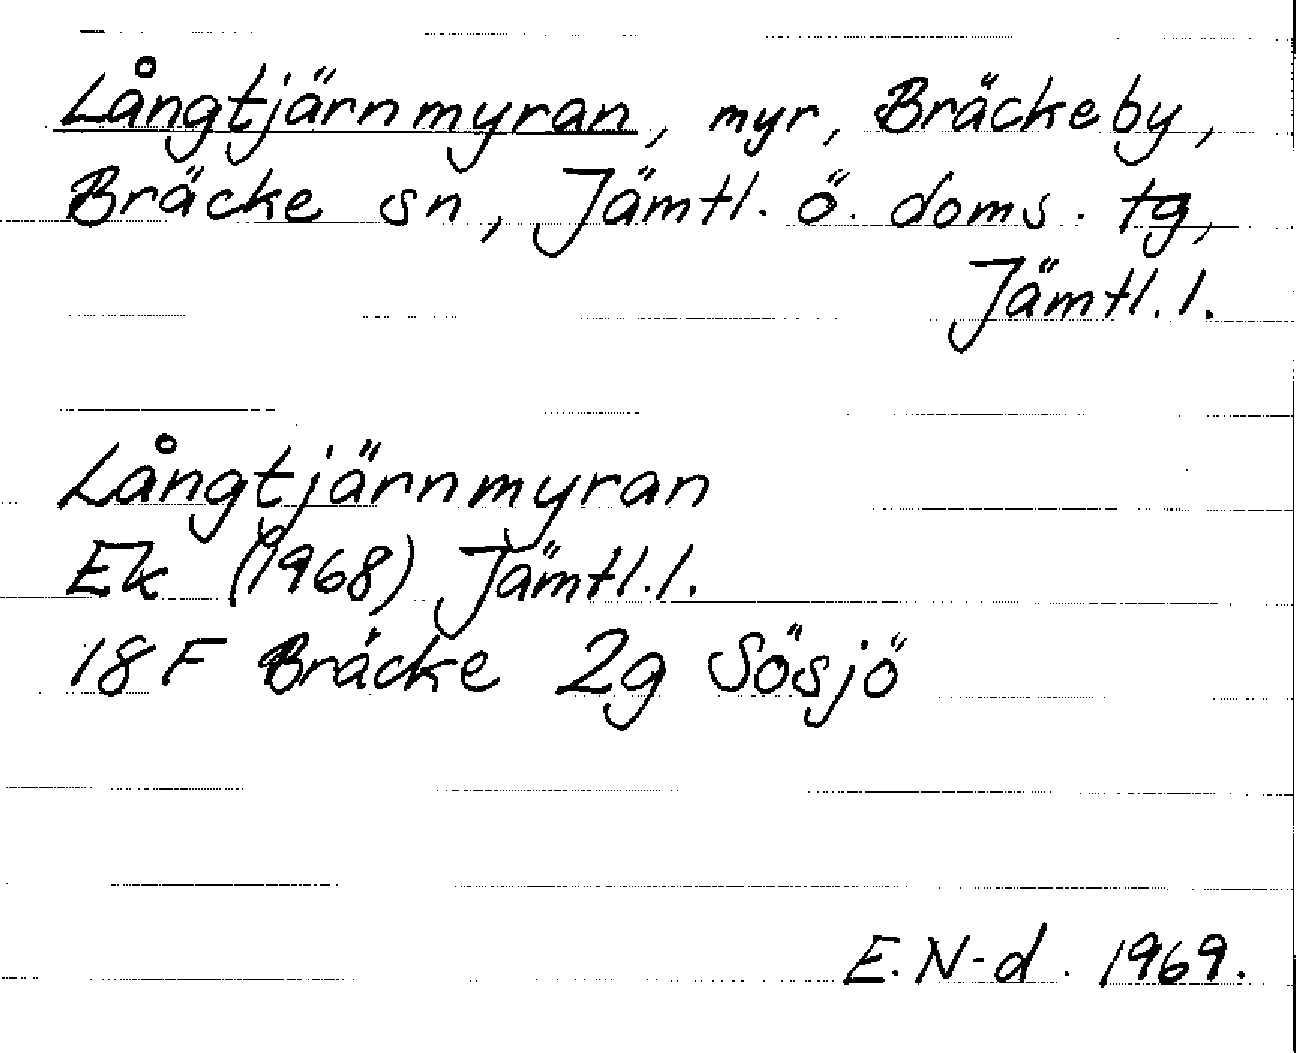 Långtjärnmyran, myr, Bräckeby,
Bräcke sn, Jämtl. ö. doms. tg,
Jämtl. l.
Långtjärnmyran
Ek (1968) Jämtl. l.
18 F Bräcke 2g Sösjö
E. N-d. 1969.